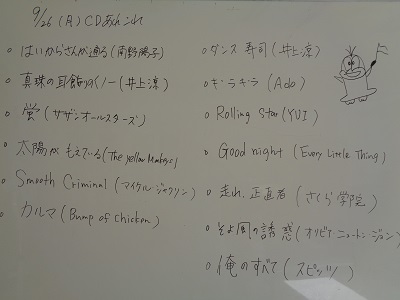 9/26 (月) CDあれこれ
○ はいからさんが通る (南野陽子)
○ 真珠の耳飾りのくノ一 (井上涼)
○ 蛍 (サザンオールスターズ)
○ 太陽が もえている (The yellow Monkeys)
○ Smooth Criminal (マイケル・ジャクソン)
○ カルマ (Bump of Chicken)
○ ダンス 寿司 (井上涼)
○ ギラギラ (Ado)
○ Rolling Star (YUI)
○ Good night (Every Little Thing)
○ 走れ、正直者 (さくら学院)
○ そよ風の誘惑 (オリビア ニュートン・ジョン)
○ 俺のすべて (スピッツ)